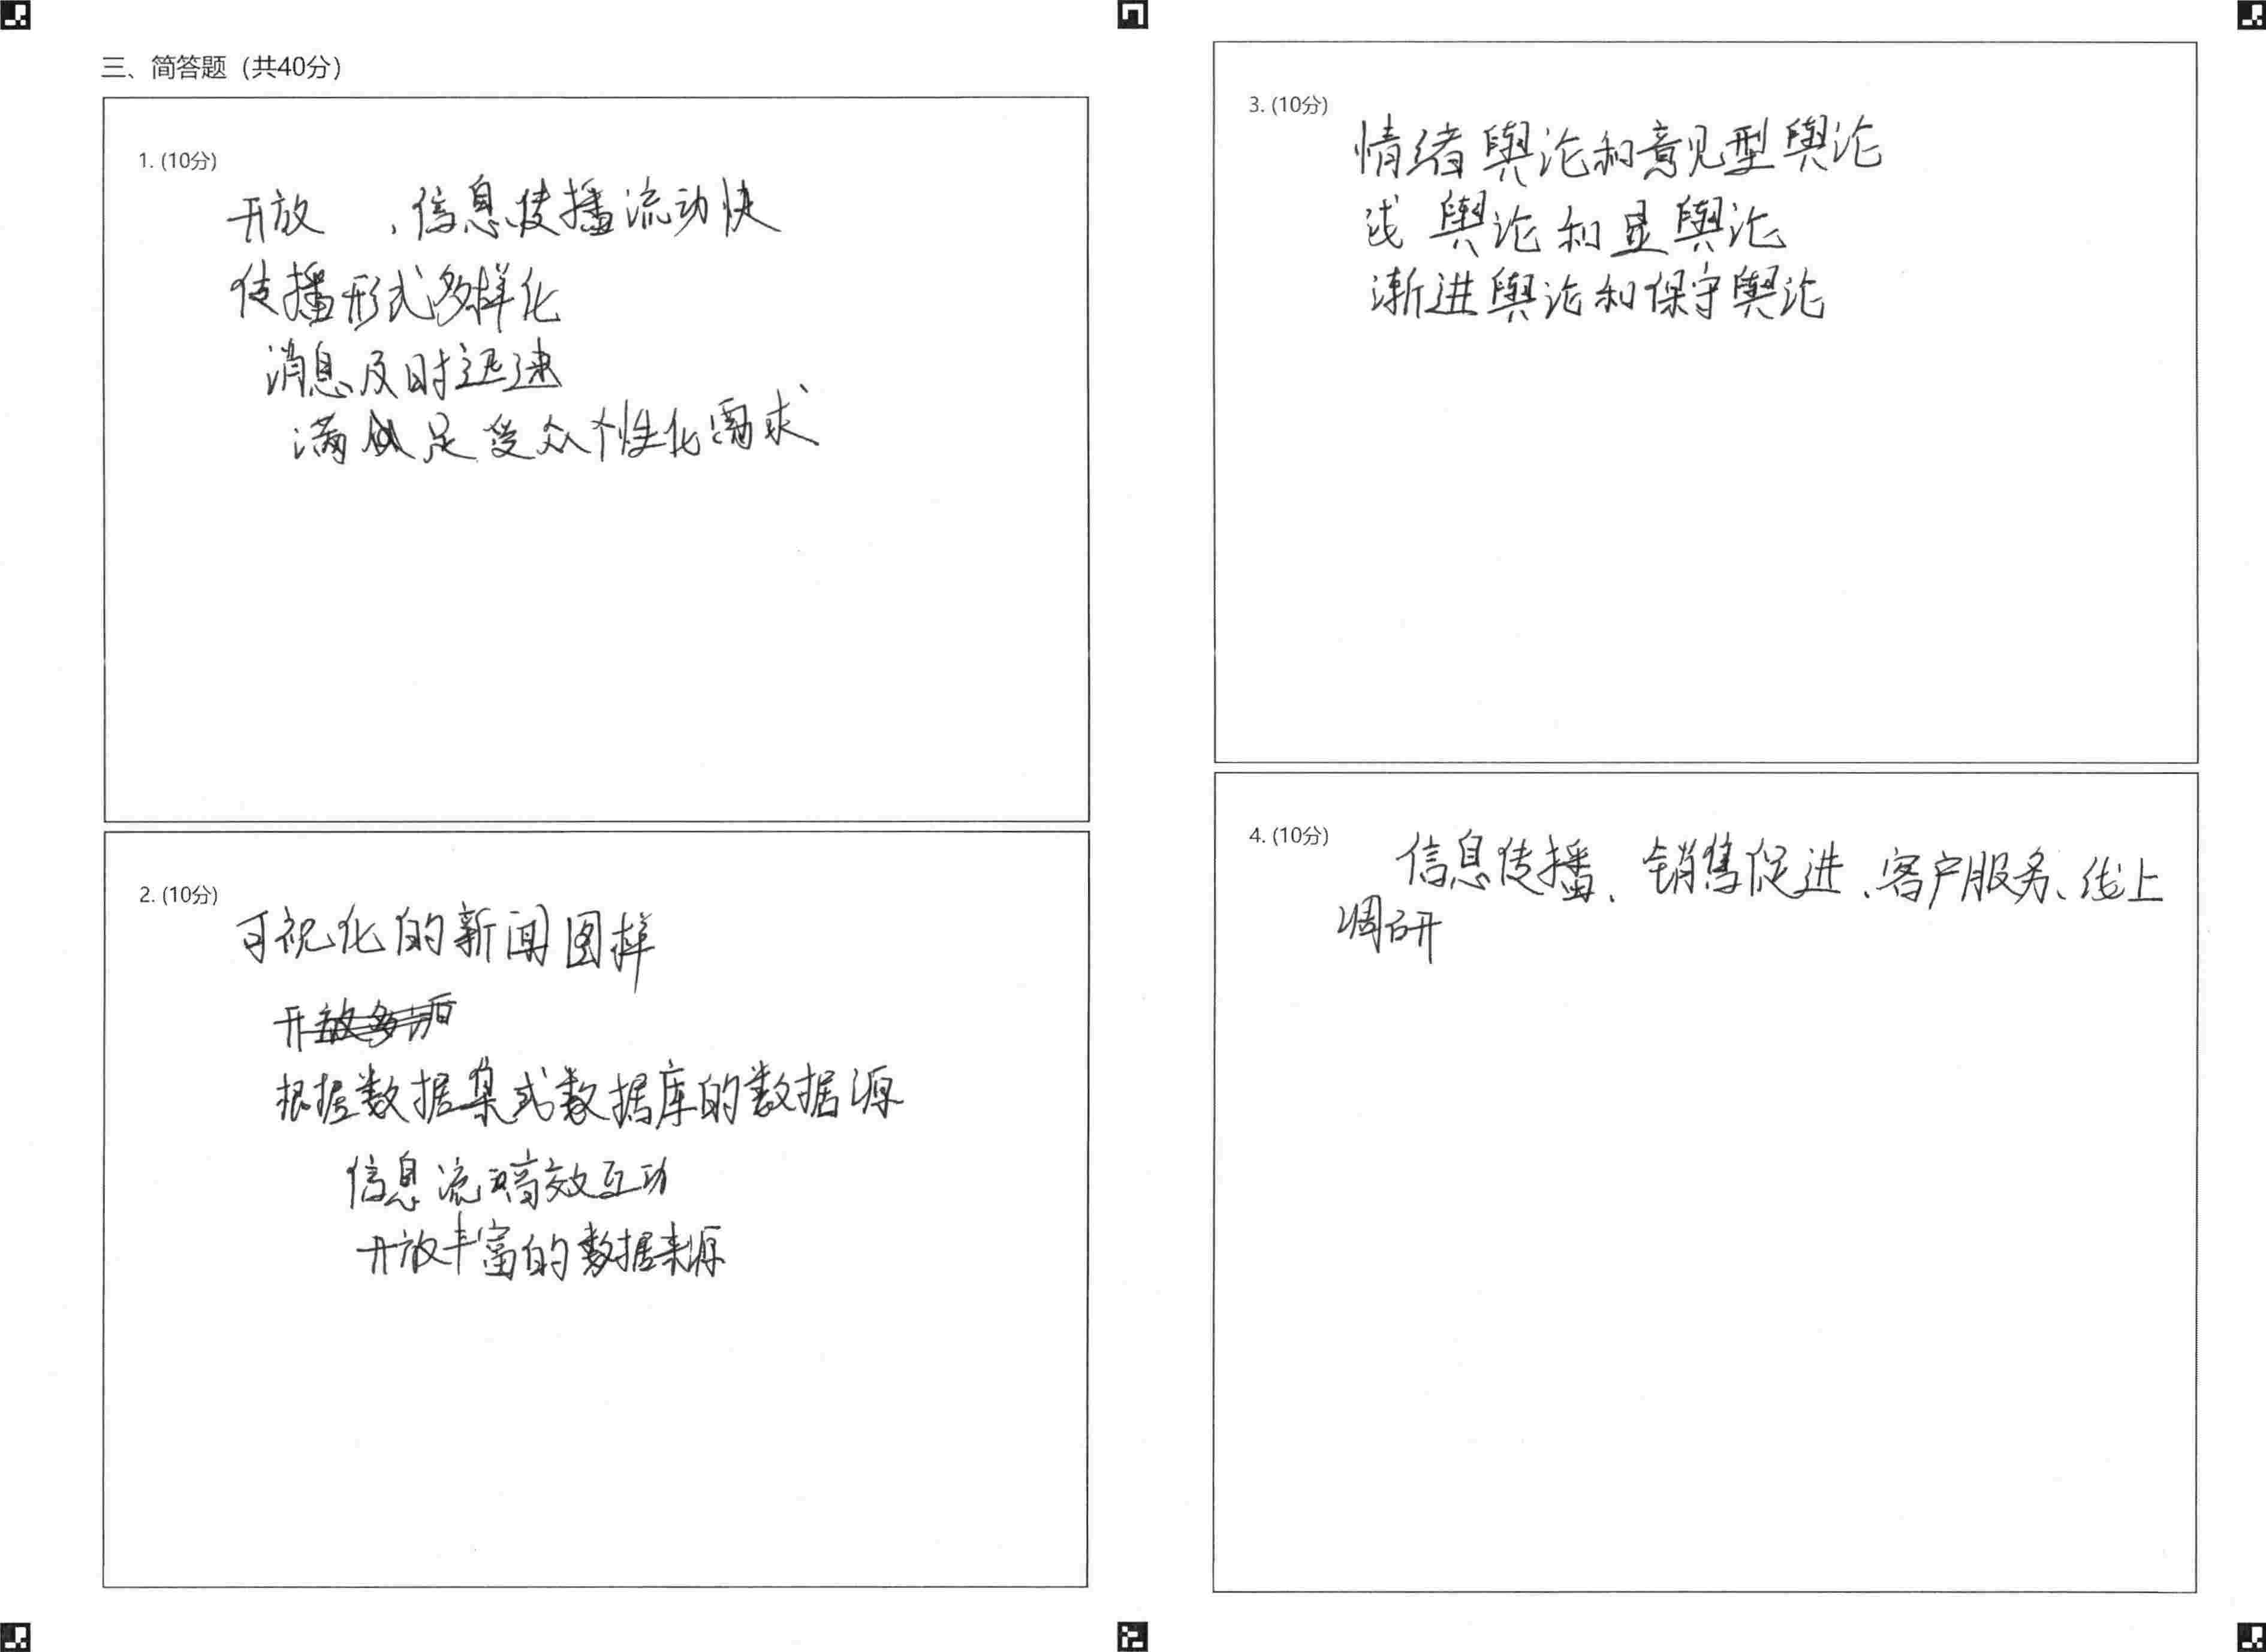 三、简答题（共40分）
1. (10分)
开放 、信息传播流动快
传播形式多样化
消息及时迅速
满足受众个性化需求
2. (10分)
可视化的新闻图样
开放多
根据数据集式数据库的数据源
信息流高效互动
开放丰富的数据来源
3. (10分)
情绪舆论和意见型舆论
浅舆论和显舆论
渐进舆论和保守舆论
4. (10分)
信息传播、销售促进、客户服务、线上
调研